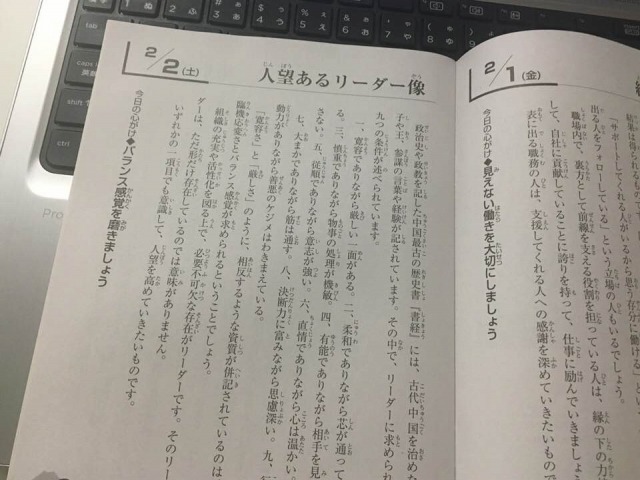 2/1(金)
結果を得
出る人をフォローしている」という立場の人もいるでしょう。
「サポートしてくれる人がいるから思う存分に働ける」
職場内で、裏方として前線を支える役割を担っている人は、縁の下の力
して、自社に貢献していることに誇りを持って、仕事に励んでいきましょう
表に出る職務の人は、支援してくれる人への感謝を深めていきたいもので
今日の心がけ◆見えない働きを大切にしましょう
2/2(土)
人望あるリーダー像
政治史や政教を記した中国最古の歴史書『書経』には、古代中国を治めた
子や王、参謀の言葉や経験が記されています。その中で、リーダーに求められ
九つの条件が述べられています。
一、寛容でありながら厳しい一面がある。二、柔和でありながら芯が通って
る。三、慎重でありながら物事の処理が機敏。四、有能でありながら相手を見
さない。五、従順でありながら意志が強い。六、直情でありながら心は温かい。
七、大まかでありながら筋は通す。八、決断力に富みながら思慮深い。九、行
動力がありながら善悪のケジメはわきまえている。
「寛容さ」と「厳しさ」のように、相反するような資質が併記されているのは
臨機応変さとバランス感覚が求められるということでしょう。
組織の充実や活性化を図る上で、必要不可欠な存在がリーダーです。そのリー
ダーは、ただ形だけ存在しているのでは意味がありません。
いずれかの一項目でも意識して、人望を高めていきたいものです。
今日の心がけ◆バランス感覚を磨きましょう
tab
caps
英数
shift
Pro